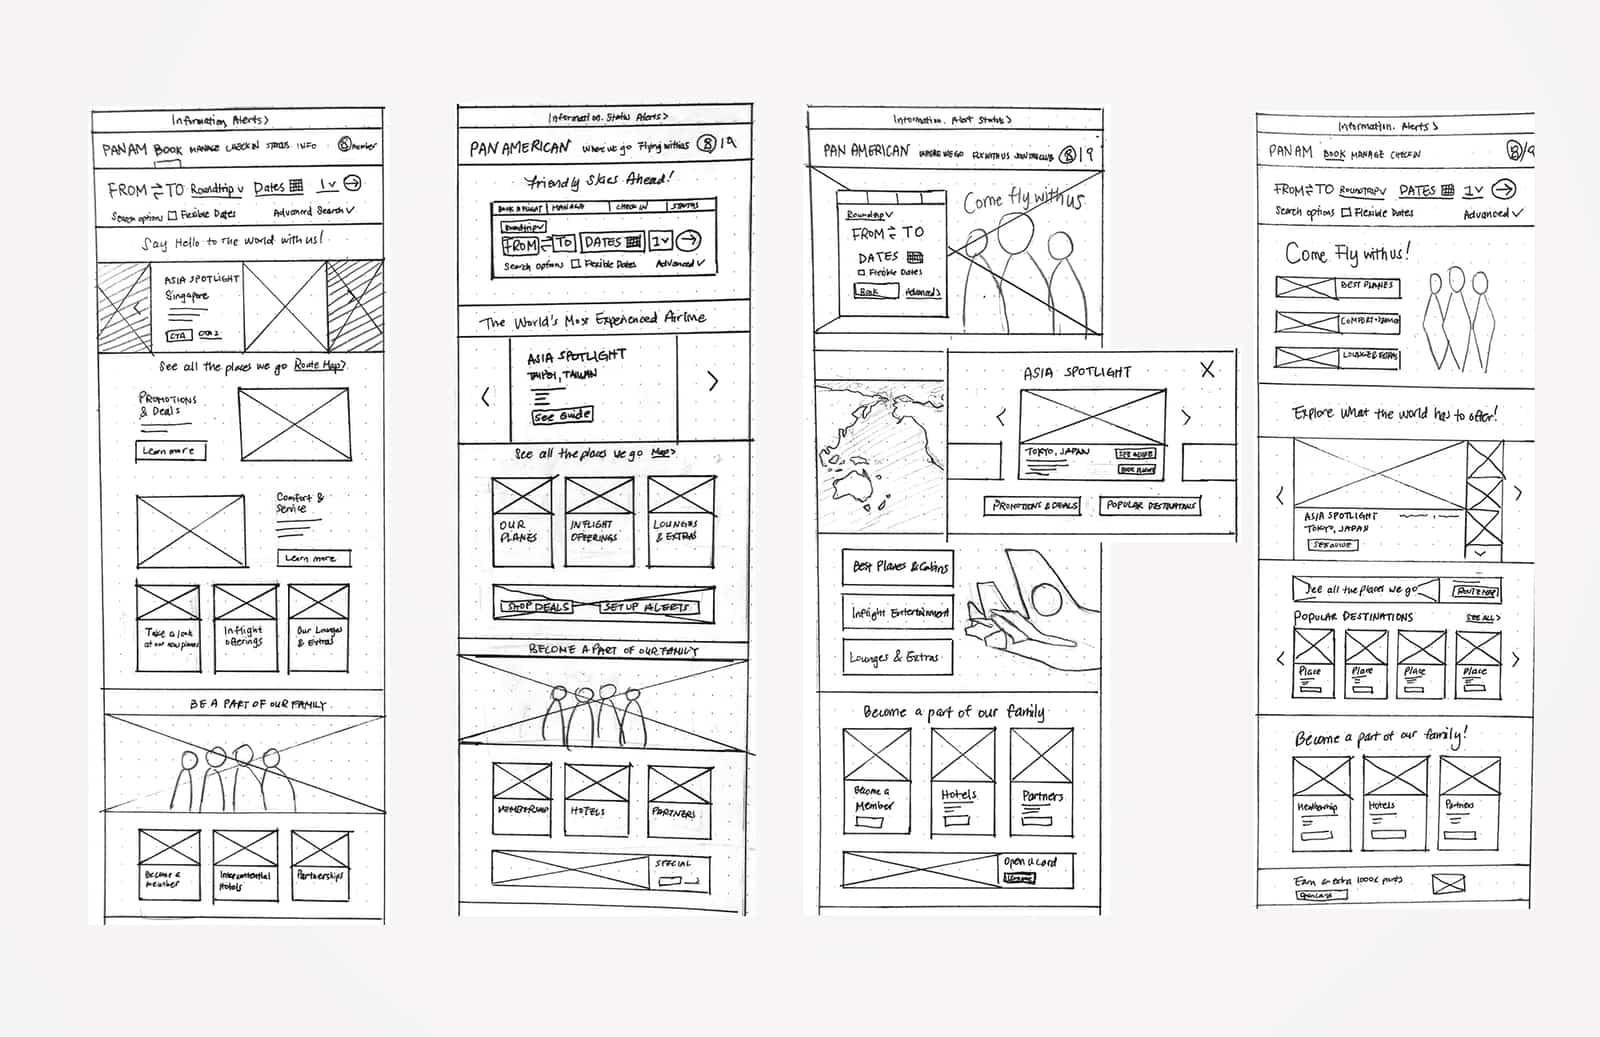 Information, Alerts>
PAN AM BOOK MANAGE CHECK IN STATUS INFO Member
FROM ⇌ TO Roundtrip v Dates 1 v →
Search options Flexible Dates Advanced Search v
Say Hello to the World with us!
ASIA SPOTLIGHT
Singapore
CTA CTA 2
See all the places we go Route Map>
PROMOTIONS
& Deals
Learn more
Comfort &
Service
Learn more
Take a look
at our new planes
Inflight
offerings
Our Lounges
& Extras
BE A PART OF OUR FAMILY
Become a
member
Intercontinental
Hotels
Partnerships
Information. Status Alerts>
PAN AMERICAN Where we go Flying with us
Friendly Skies Ahead!
BOOK A FLIGHT MANAGE CHECK IN STATUS
Roundtrip v
FROM ⇌ TO DATES 1 v →
Search options Flexible Dates Advanced v
The World's Most Experienced Airline
ASIA SPOTLIGHT
TAIPEI, TAIWAN
See Guide
< >
See all the places we go Map>
OUR
PLANES
INFLIGHT
OFFERINGS
LOUNGES
& EXTRAS
SHOP DEALS SETUP ALERTS
BECOME A PART OF OUR FAMILY
MEMBERSHIP
HOTELS
PARTNERS
SPECIAL
Information. Alert Status>
PAN AMERICAN WHERE WE GO FLY WITH US JOIN THE CLUB
Come fly with us
Roundtrip v
FROM ⇌ TO
DATES
Flexible Dates
Book Advanced>
ASIA SPOTLIGHT X
< >
TOKYO, JAPAN SEE GUIDE
BOOK FLIGHT
PROMOTIONS & DEALS POPULAR DESTINATIONS
Best Planes & Cabins
Inflight Entertainment
Lounges & Extras
Become a part of our family
Become a
Member
Hotels
Partners
Open a card
Information. Alerts >
PAN AM BOOK MANAGE CHECK IN
FROM ⇌ TO ROUNDTRIP v DATES 1 v →
Search options Flexible Dates Advanced v
Come Fly with us!
BEST PLANES
COMFORT + SERVICE
LOUNGE & EXTRAS
Explore what the world has to offer!
< >
ASIA SPOTLIGHT
TOKYO, JAPAN
SEE GUIDE
See all the places we go ROUTE MAP
POPULAR DESTINATIONS SEE ALL >
< Place Place Place Place >
Become a part of our family!
Membership
Hotels
Partners
Earn an extra 1000K points